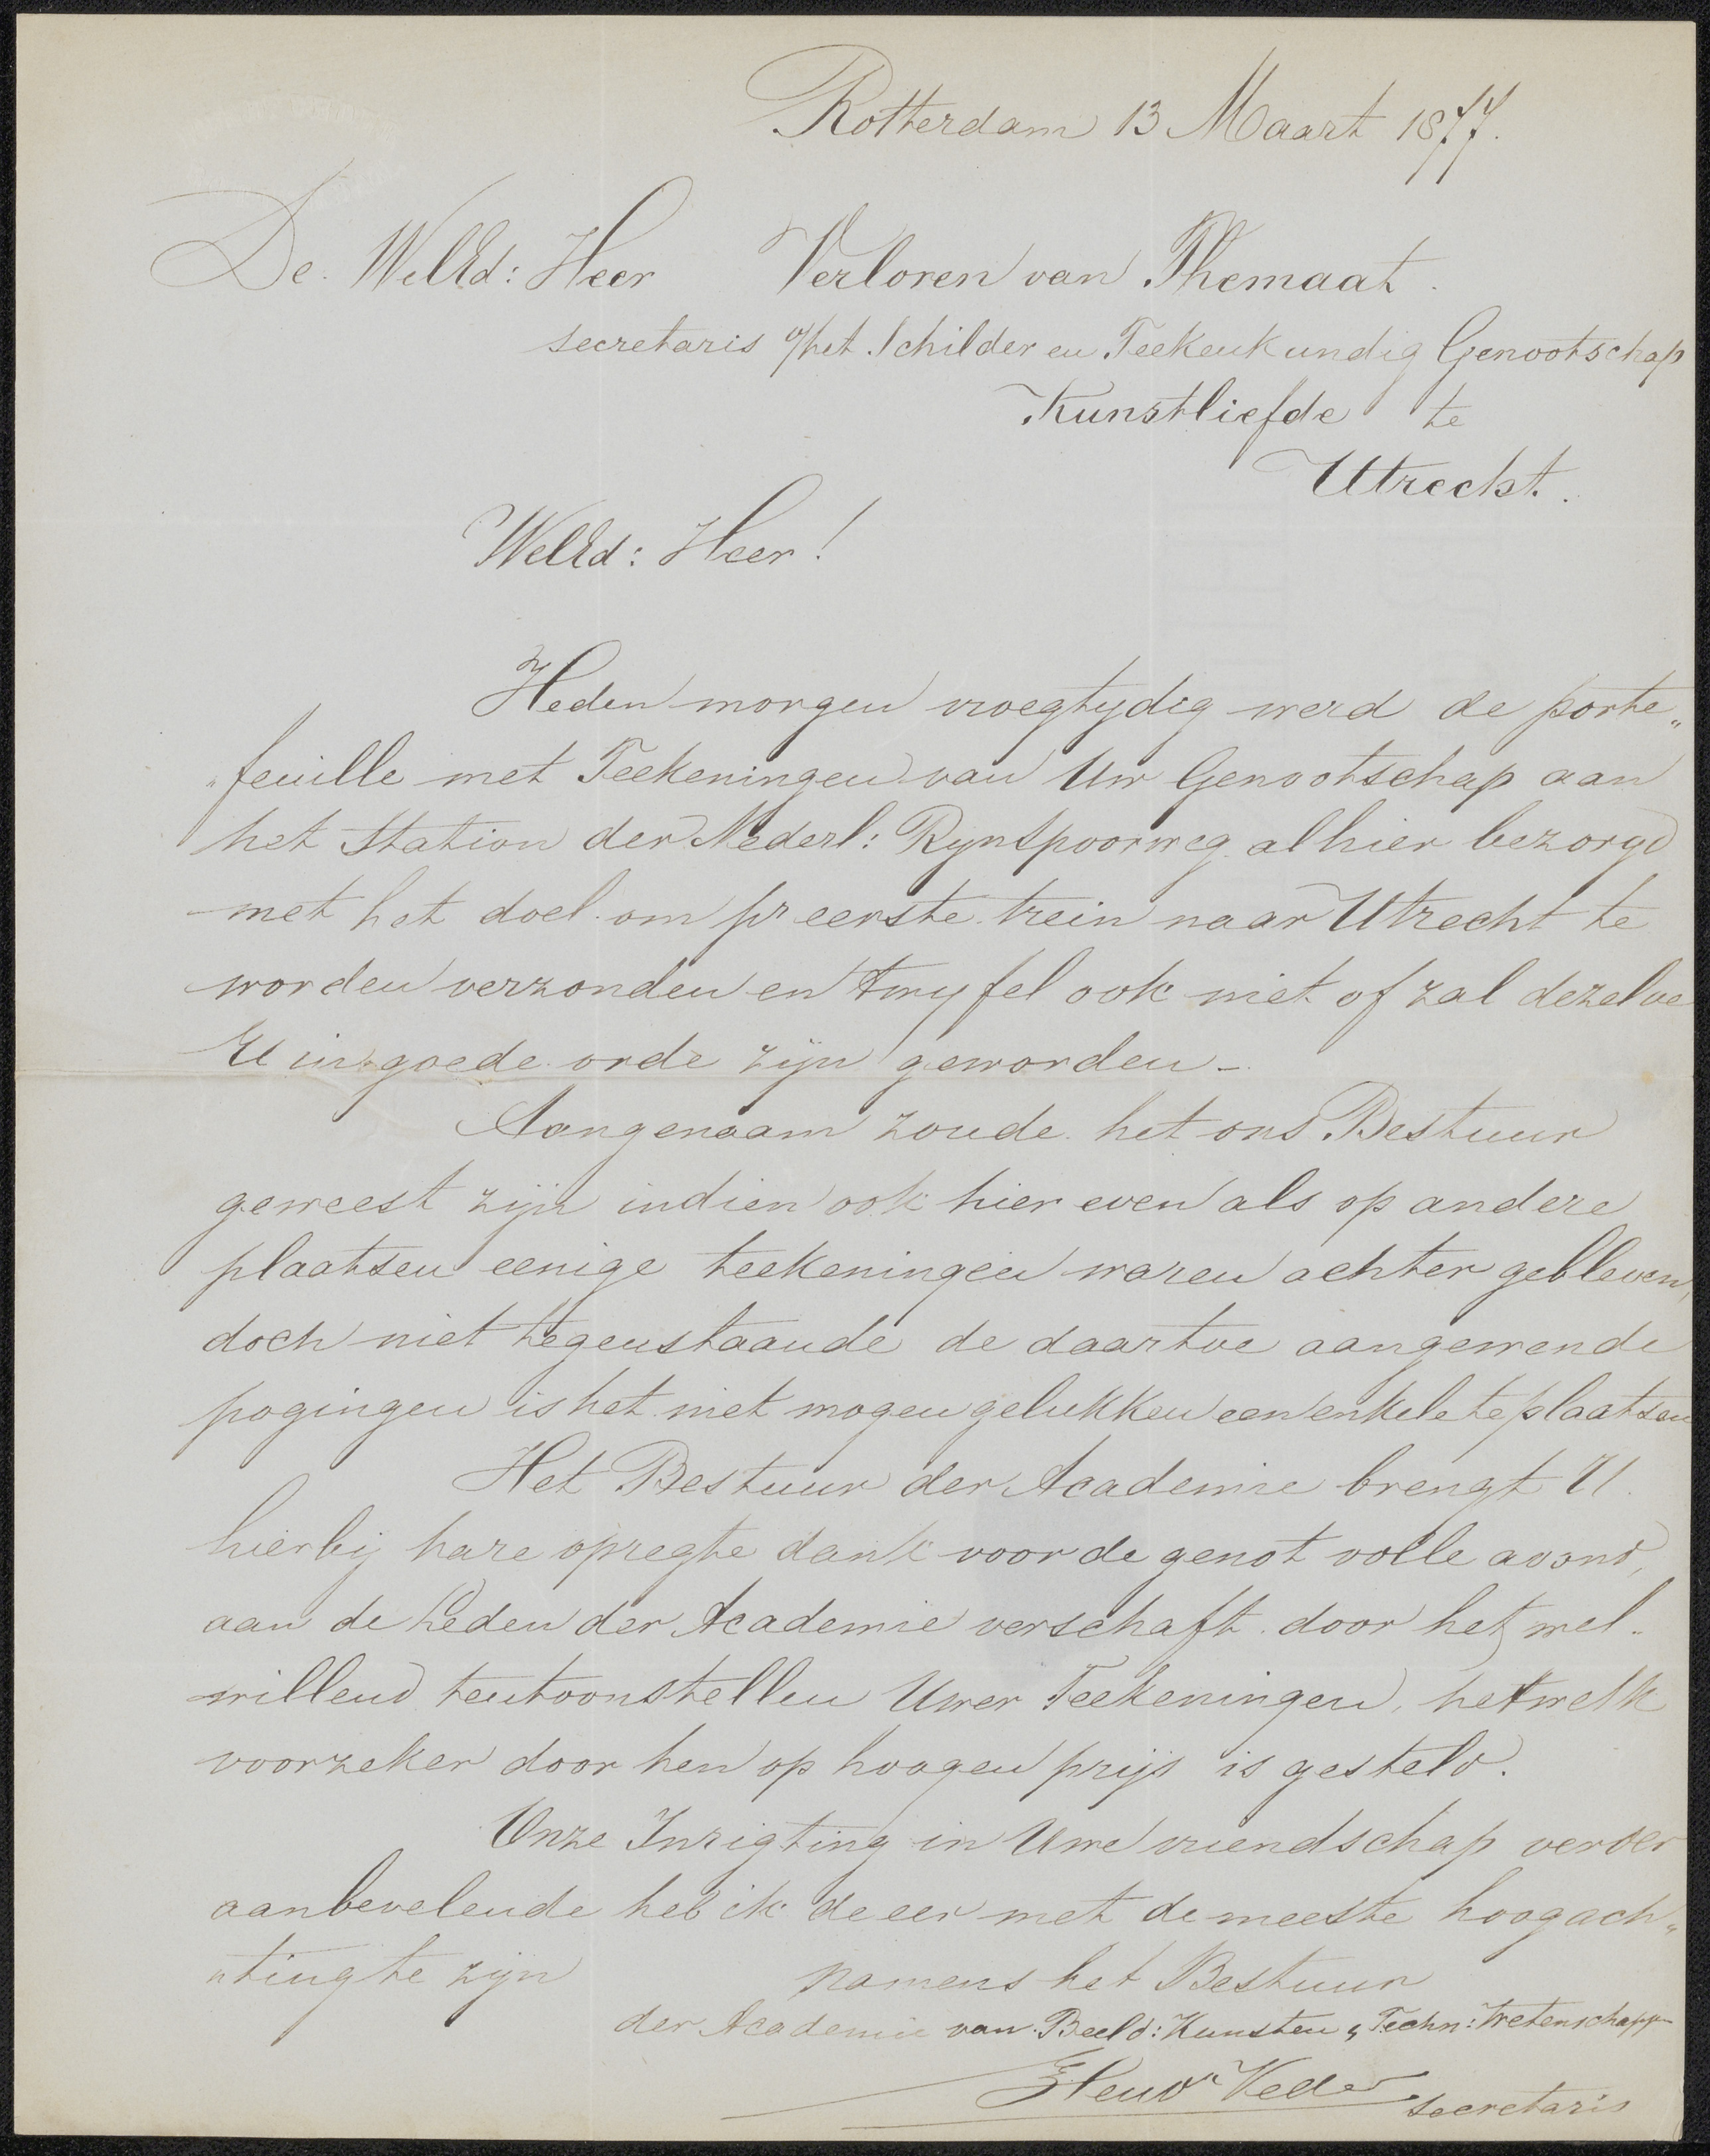 Rotterdam 13 Maart 1877.
De WelEd: Heer Verloren van Themaat.
secretaris v/het Schilder en Teekenkundig Genootschap
Kunstliefde te
Utrecht.
WelEd: Heer!
Heden morgen vroegtydig werd de porte„
„feuille met Teekeningen van Uw Genootschap aan
het Station der Nederl: Rynspoorweg alhier bezorgd
met het doel om pr eerste trein naar Utrecht te
worden verzonden en twyfel ook niet of zal dezelve
U in goede orde zijn geworden -
Aangenaam zoude het ons Bestuur
geweest zijn indien ook hier even als op andere
plaatsen eenige teekeningen waren achter gebleven,
doch niet tegenstaande de daartoe aangewende
pogingen is het niet mogen gelukken een enkele te plaatsen
Het Bestuur der Academie brengt U.
hierbij hare opregte dank voor de genot volle avond,
aan de Leden der Academie verschaft door het wel-
willend tentoonstellen Uwer Teekeningen, hetwelk
voorzeker door hen op hoogen prijs is gesteld.
Onze Inrigting in Uwe vriendschap verder
aanbevelende heb ik de eer met de meeste hoogach„
„ting te zijn namens het Bestuur
der Academie van Beeld: Kunsten & Techn: Wetenschappen
Hend Veder
secretaris